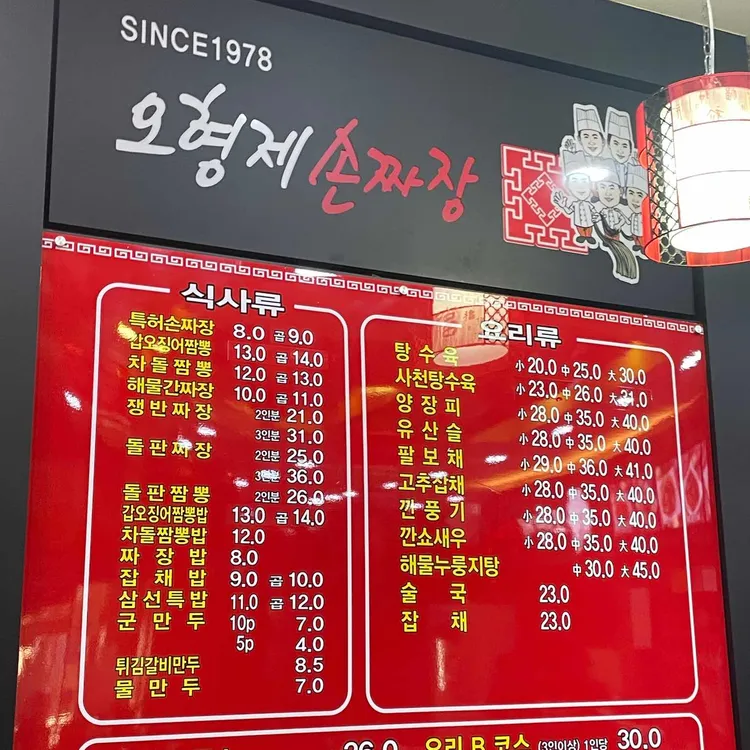 SINCE1978
오형제손짜장
식사류
특허손짜장 8.0 곱9.0
갑오징어짬뽕 13.0 곱14.0
차돌짬뽕 12.0 곱13.0
해물간짜장 10.0 곱11.0
쟁반짜장 2인분 21.0
3인분 31.0
돌판짜장 2인분 25.0
3인분 36.0
돌판짬뽕 2인분 26.0
갑오징어짬뽕밥 13.0 곱14.0
차돌짬뽕밥 12.0
짜장밥 8.0
잡채밥 9.0 곱10.0
삼선특밥 11.0 곱12.0
군만두 10p 7.0
5p 4.0
튀김갈비만두 8.5
물만두 7.0
요리류
탕수육 小20.0 中25.0 大30.0
사천탕수육 小23.0 中26.0 大31.0
양장피 小28.0 中35.0 大40.0
유산슬 小28.0 中35.0 大40.0
팔보채 小29.0 中36.0 大41.0
고추잡채 小28.0 中35.0 大40.0
깐풍기 小28.0 中35.0 大40.0
깐쇼새우 小28.0 中35.0 大40.0
해물누룽지탕 中30.0 大45.0
술국 23.0
잡채 23.0
26.0
요리 B 코스 (3인이상) 1인당 30.0